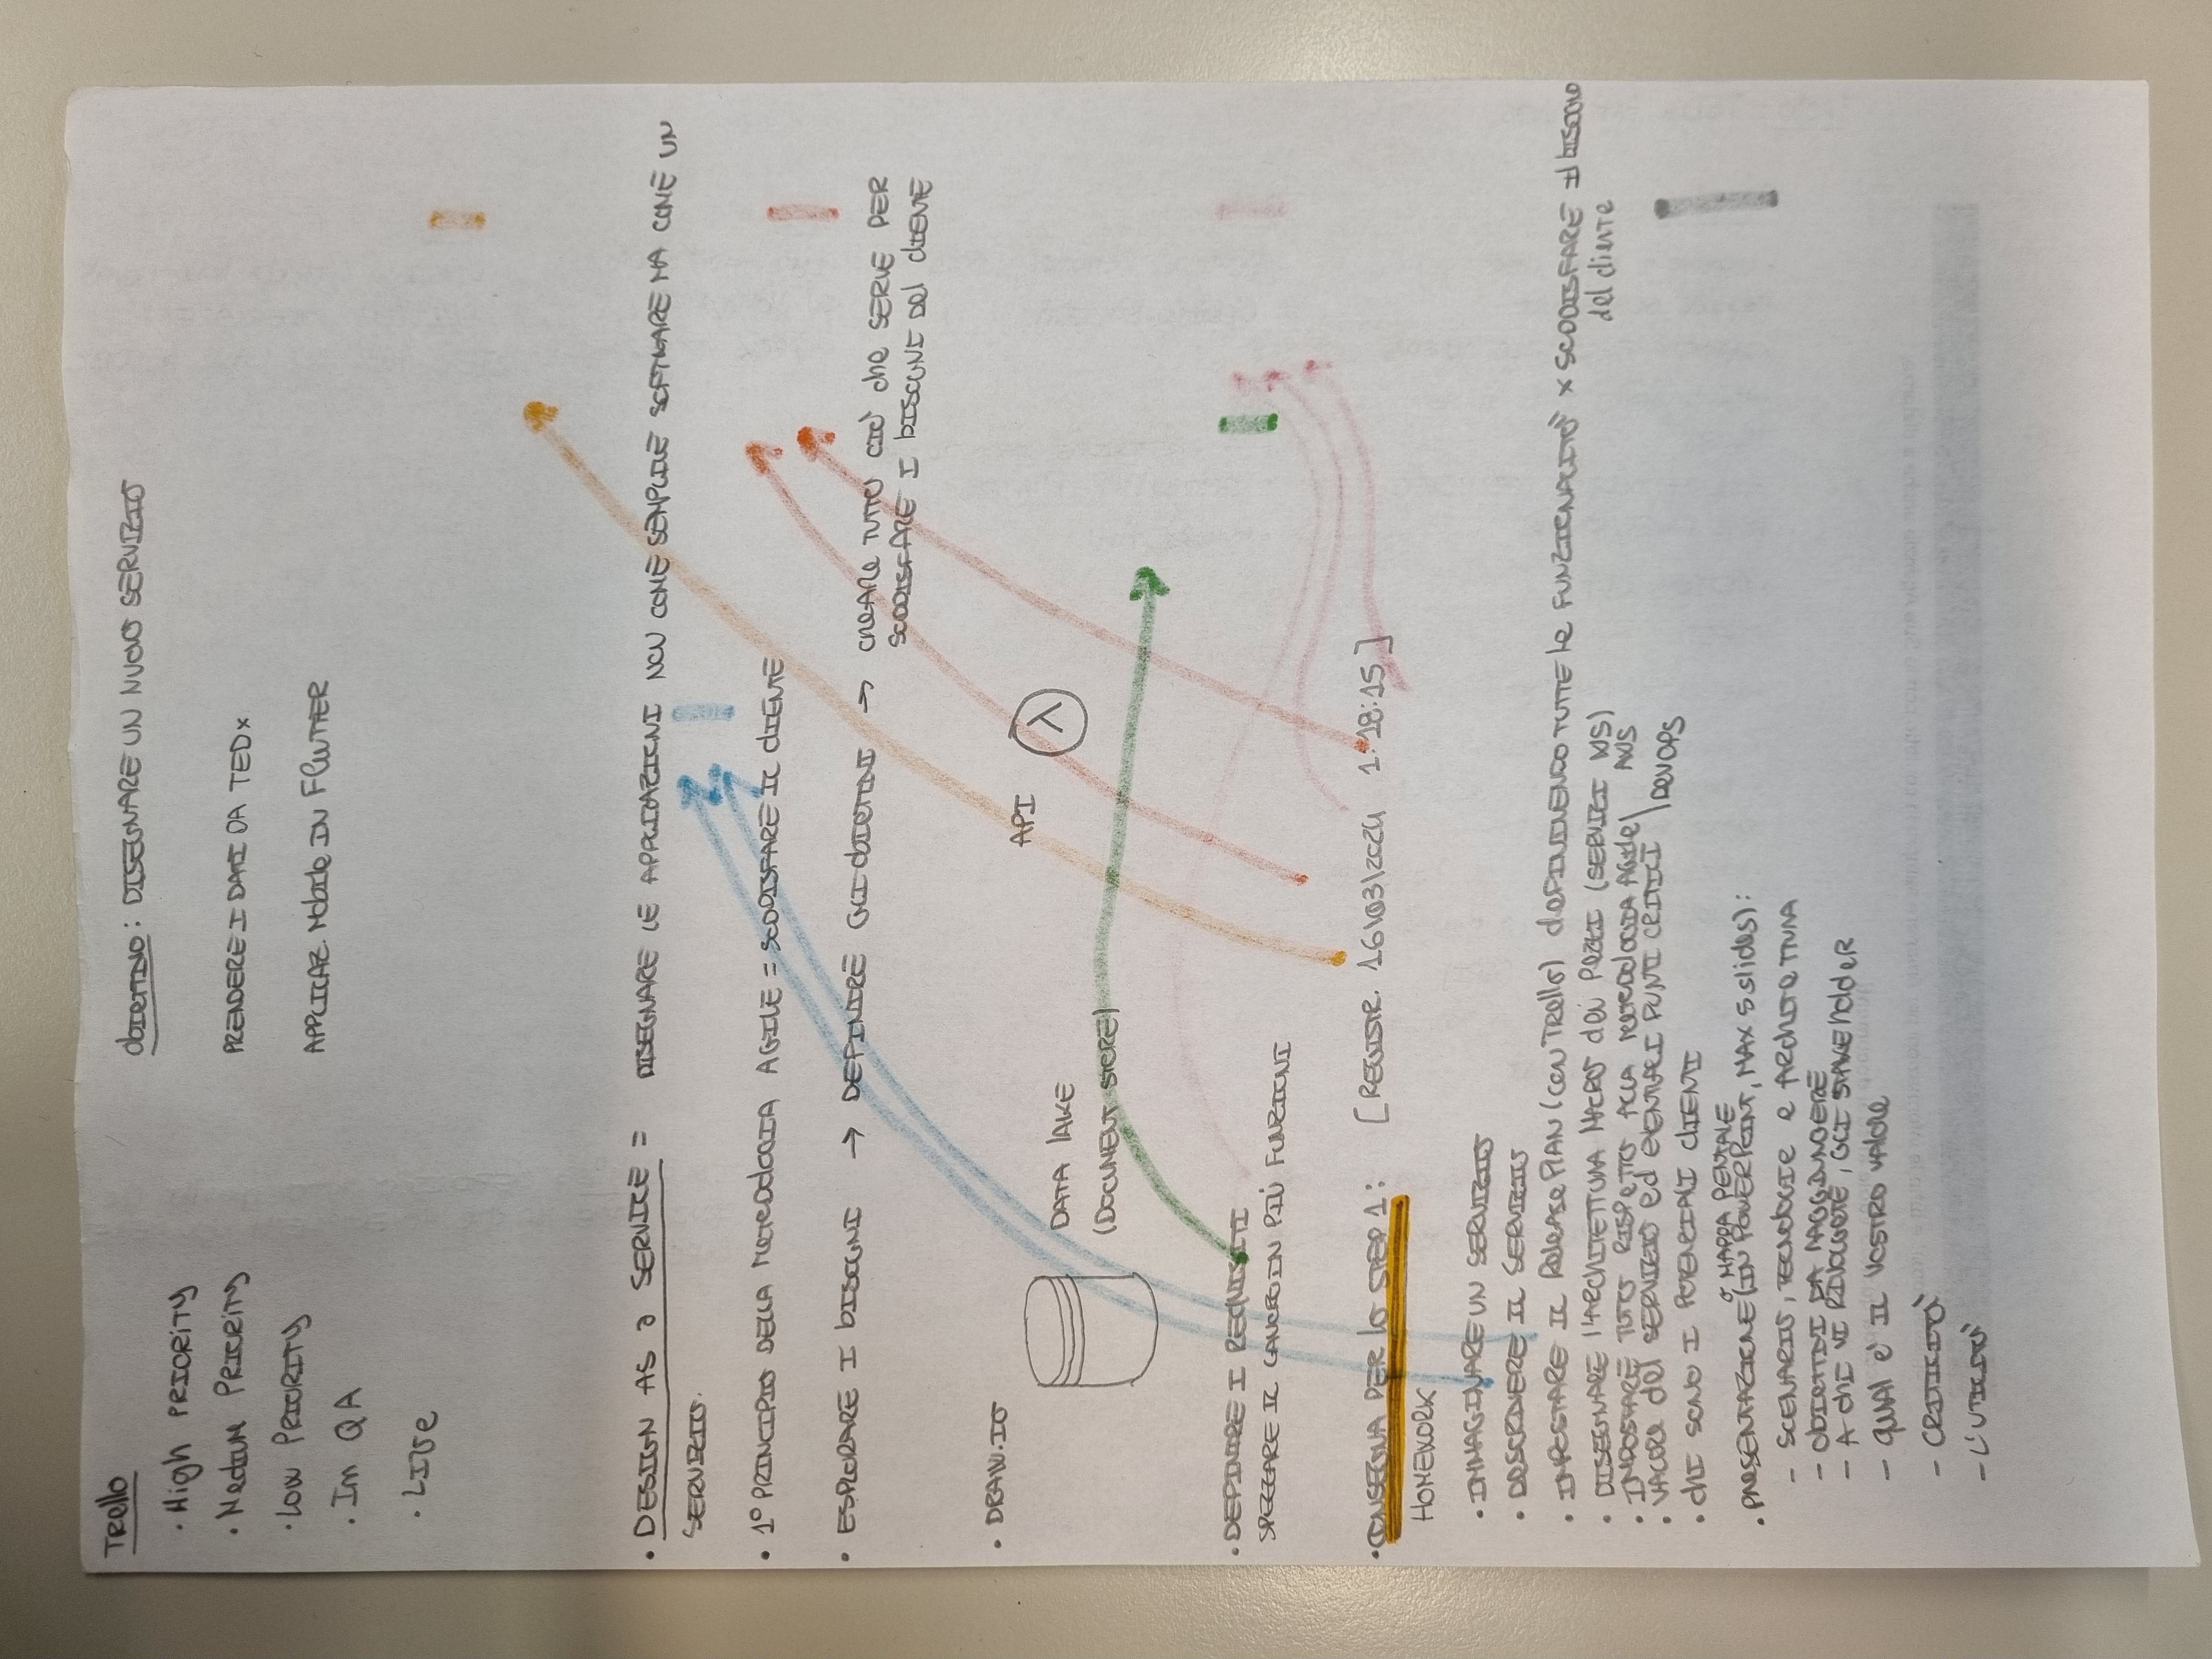 Trello
· High PRIORITY
· Medium PRIORITY
· Low PRIORITY
· In QA
· LIVE
Obiettivo: DISEGNARE UN NUOVO SERVIZIO
PRENDERE I DATI DA TEDx
APPLICAZ. Mobile IN FLUTTER
· DESIGN AS a SERVICE = DISEGNARE LE APPLICAZIONI NON COME SEMPLICE SOFTWARE MA COME UN
SERVIZIO.
· 1° PRINCIPIO DELLA METODOLOGIA AGILE = SODDISFARE IL CLIENTE
· ESPLORARE I BISOGNI → DEFINIRE GLI OBIETTIVI → CREARE TUTTO CIÒ che SERVE PER
SODDISFARE I BISOGNI DEL CLIENTE
· DRAW.IO
API
λ
DATA LAKE
(DOCUMENT STORE)
· DEFINIRE I REQUISITI
SPEZZARE IL IN PIÙ FUNZIONI
· CONSEGNA PER LO STEP 1: [REGISTR. 16\03\2024 1:18:15]
HOMEWORK
· IMMAGINARE UN SERVIZIO
· DESCRIVERE IL SERVIZIO
· IMPOSTARE IL Release PLAN (CON Trello) definendo TUTTE le FUNZIONALITÀ x SODDISFARE il BISOGNO
del cliente
· DISEGNARE l'ARCHITETTURA MACRO dei PEZZI (SERVIZI)
AWS
· IMPOSTARE TUTTO RISPETTO ALLA METODOLOGIA AGILE
· VALORE del SERVIZIO ed EVENTUALI PUNTI CRITICI
DevOPS
· chi SONO I POTENZIALI CLIENTI
o MAPPA MENTALE
· PRESENTAZIONE (IN POWERPOINT, MAX 5 slides):
- SCENARIO, TECNOLOGIE e ARCHITETTURA
- OBIETTIVI DA RAGGIUNGERE
- A chi VI RIVOLGETE, GLI STAKEholdeR
- qUAl è IL VOSTRO VALORE
- CRITICITÀ
- L'UTILITÀ